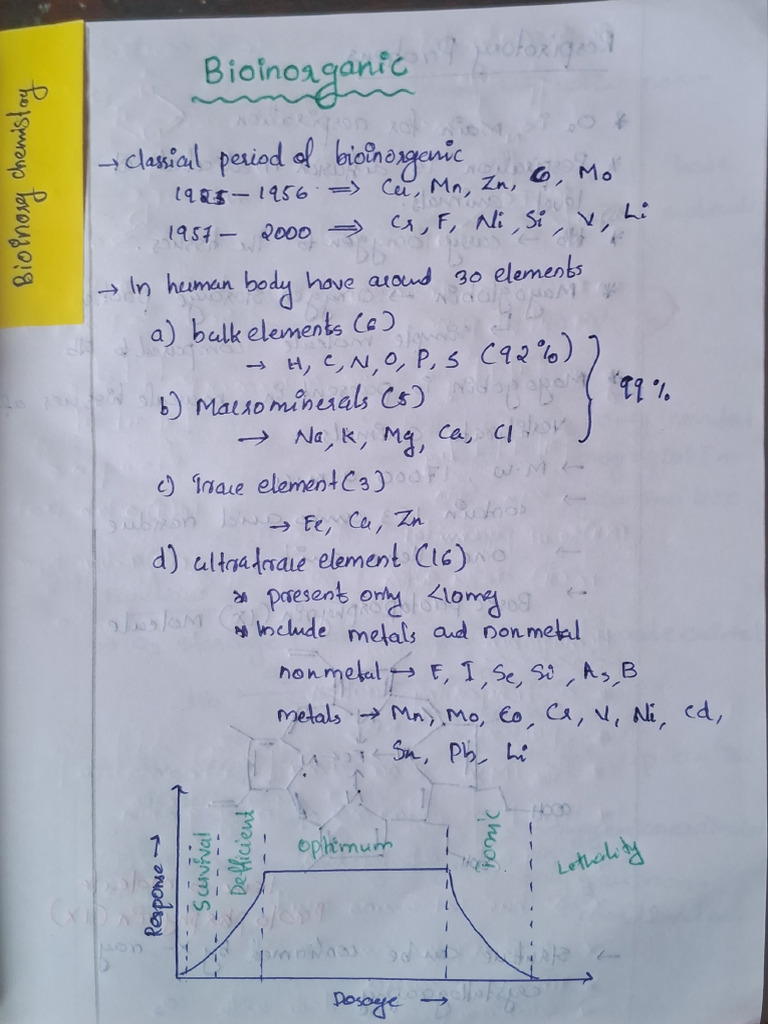 Bioinorg chemistry
Bioinorganic
→ classical period of bioinorgenic
1925 – 1956 ⇒ Cu, Mn, Zn, Co, Mo
1957 – 2000 ⇒ Cr, F, Ni, Si, V, Li
→ In human body have around 30 elements
a) bulk elements (6)
→ H, C, N, O, P, S (92%)
99%
b) Macrominerals (5)
→ Na, K, Mg, Ca, Cl
c) Trace element (3)
→ Fe, Cu, Zn
d) ultratrace element (16)
* present only <10mg
* Include metals and nonmetal
nonmetal → F, I, Se, Si, As, B
metals → Mn, Mo, Co, Cr, V, Ni, cd,
Sn, Pb, Li
Response →
Survival
Defficient
optimum
Lethality
Dosage →